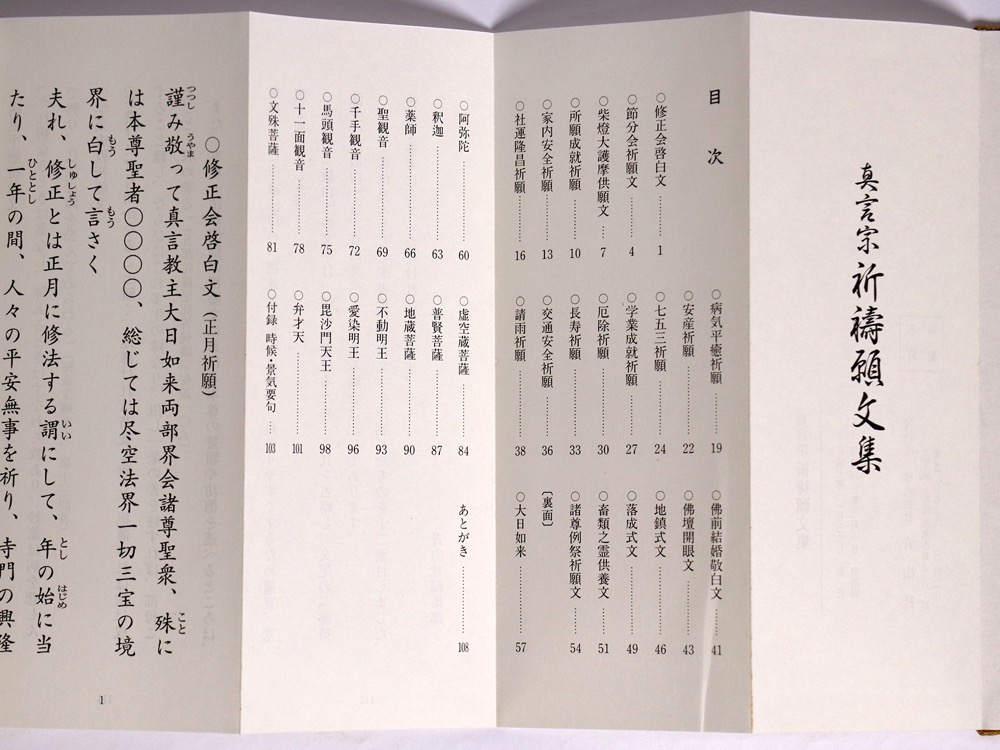 真言宗祈禱願文集
目次
○修正会啓白文………1
○節分会祈願文………4
○柴燈大護摩供願文…7
○所願成就祈願………10
○家内安全祈願………13
○社運隆昌祈願………16
○病気平癒祈願………19
○安産祈願………22
○七五三祈願………24
○学業成就祈願………27
○厄除祈願………30
○長寿祈願………33
○交通安全祈願………36
○請雨祈願………38
○佛前結婚敬白文………41
○佛壇開眼文………43
○地鎮式文………46
○落成式文………49
○畜類之霊供養文………51
○諸尊例祭祈願文………54
〔裏面〕
○大日如来………57
○阿弥陀………60
○釈迦………63
○薬師………66
○聖観音………69
○千手観音………72
○馬頭観音………75
○十一面観音………78
○文殊菩薩………81
○虚空蔵菩薩………84
○普賢菩薩………87
○地蔵菩薩………90
○不動明王………93
○愛染明王………96
○毘沙門天王………98
○弁才天………101
○付録 時候・景気要句…103
あとがき………108
○修正会啓白文(正月祈願)
謹み敬って真言教主大日如来両部界会諸尊聖衆、殊に
は本尊聖者〇〇〇〇、総じては尽空法界一切三宝の境
界に白して言さく
夫れ、修正とは正月に修法する謂にして、年の始に当
たり、一年の間、人々の平安無事を祈り、寺門の興隆
1